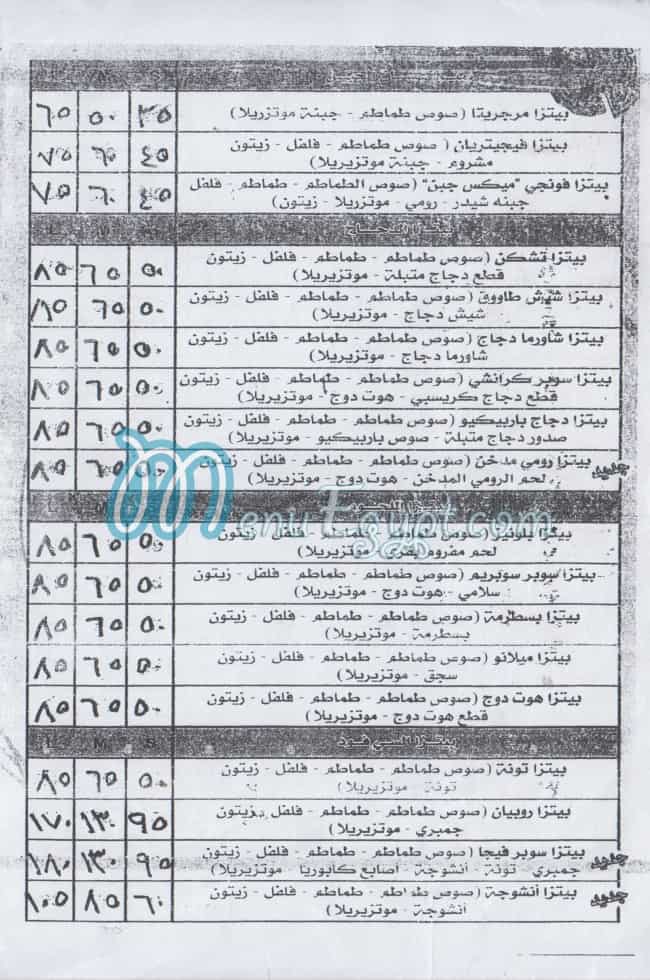 L M S
٦٥ ٥٠ ٣٥ بيتزا مرجريتا (صوص طماطم - جبنة موتزريلا)
٧٥ ٦٠ ٤٥ بيتزا فيجيتريان ( صوص طماطم - فلفل - زيتون
مشروم - جبنة موتزيريلا)
٧٥ ٦٠ ٤٥ بيتزا فونجي "ميكس جبن" (صوص الطماطم - طماطم - فلفل
جبنه شيدر - رومي - موتزريلا - زيتون)
بيتزا الدجاج
٨٥ ٦٥ ٥٠ بيتزا تشكن (صوص طماطم - طماطم - فلفل - زيتون
قطع دجاج متبلة - موتزيريلا)
٨٥ ٦٥ ٥٠ بيتزا شيش طاووق (صوص طماطم - طماطم - فلفل - زيتون
شيش دجاج - موتزيريلا)
٨٥ ٦٥ ٥٠ بيتزا شاورما دجاج (صوص طماطم - طماطم - فلفل - زيتون
شاورما دجاج - موتزيريلا)
٨٥ ٦٥ ٥٠ بيتزا سوبر كرانشي (صوص طماطم - طماطم - فلفل - زيتون
قطع دجاج كريسبي - هوت دوج - موتزيريلا)
٨٥ ٦٥ ٥٠ بيتزا دجاج باربيكيو (صوص طماطم - طماطم - فلفل - زيتون
صدور دجاج متبلة - صوص باربيكيو - موتزيريلا)
٨٥ ٦٥ ٥٠ بيتزا رومي مدخن (صوص طماطم - طماطم - فلفل - زيتون جديد
لحم الرومي المدخن - هوت دوج - موتزيريلا)
بيتزا اللحوم
MenuEgypt.com
٨٥ ٦٥ ٥٠ (صوص طماطم - طماطم - فلفل - زيتون
لحم مفروم - موتزيريلا)
٨٥ ٦٥ ٥٠ بيتزا سوبر سوبريم (صوص طماطم - طماطم - فلفل - زيتون
سلامي - هوت دوج - موتزيريلا)
٨٥ ٦٥ ٥٠ بيتزا بسطرمة (صوص طماطم - طماطم - فلفل - زيتون
بسطرمة - موتزيريلا)
٨٥ ٦٥ ٥٠ بيتزا ميلانو (صوص طماطم - طماطم - فلفل - زيتون
سجق - موتزيريلا)
٨٥ ٦٥ ٥٠ بيتزا هوت دوج (صوص طماطم - طماطم - فلفل - زيتون
قطع هوت دوج - موتزيريلا)
L M S بيتزا السي فود
٨٥ ٦٥ ٥٠ بيتزا تونة (صوص طماطم - طماطم - فلفل - زيتون
تونة - موتزيريلا)
١٧٠ ١٣٠ ٩٥ بيتزا روبيان (صوص طماطم - طماطم - فلفل - زيتون
جمبري - موتزيريلا)
١٨٠ ١٣٠ ٩٥ بيتزا سوبر فيجا (صوص طماطم - طماطم - فلفل - زيتون جديد
جمبري - تونة - أنشوجة - اصابع كابوريا - موتزيريلا)
١٠٥ ٨٥ ٦٠ بيتزا أنشوجة (صوص طماطم - طماطم - فلفل - زيتون جديد
أنشوجة - موتزيريلا)